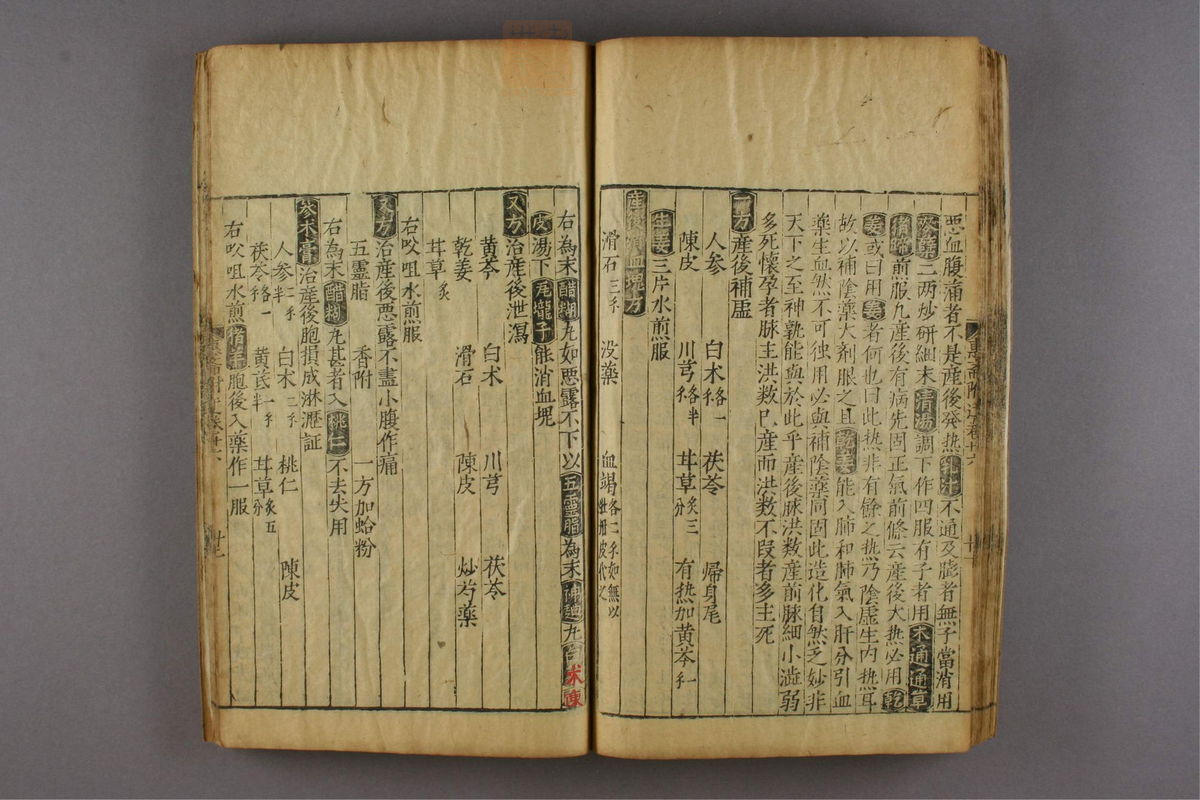 惡血腹痛者不是産後發熱乳汁不通及膨者無子當消用
麥蘖二两炒研細末清湯調下作四服有子者用木通通草
猪蹄煎服九産後有病先固正氣前條云産後大热必用乾
姜或曰用姜者何也曰此热非有餘之热乃陰虚生内热耳
故以補陰藥大剤服之且乾姜能入肺和肺氣入肝分引血
藥生血然不可独用必與補陰藥同固此造化自然之妙非
天下之至神孰能與於此乎産後脉洪数産前脉細小澁弱
多死懷孕者脉主洪数已産而洪数不叚者多主死
一方産後補虚
人参 白术各一 茯苓 帰身尾
陳皮 川芎各半 甘草炙三分 有热加黄芩一
生姜三片水煎服
産後消血塊方
滑石三 没藥 血竭各二 如無以牡丹皮代之
右為末醋糊丸如惡露不下以五靈脂為末神麯丸白术陳
皮湯下瓦壠子能消血塊
又方治産後泄瀉
黄芩 白术 川芎 茯苓
乾姜 滑石 陳皮 炒芍藥
甘草炙
右㕮咀水煎服
又方治産後惡露不盡小腹作痛
五靈脂 香附 一方加蛤粉
右為末醋糊丸甚者入桃仁不去尖用
参术膏治産後胞損成淋瀝証
人参二半 白术二 桃仁 陳皮
茯苓各一 黄芪一半 甘草炙五分
右㕮咀水煎猪羊胞後入藥作一服